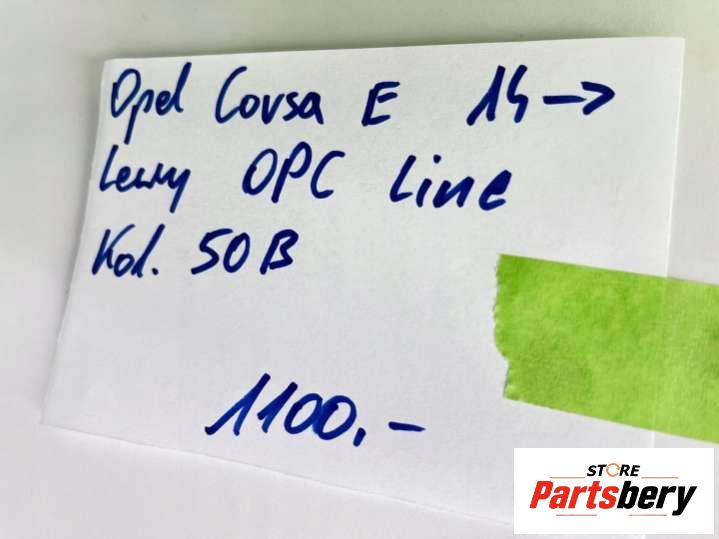 Opel Corsa E 14->
Lewy OPC Line
Kol. 50B
1100,-
STORE
Partsbery